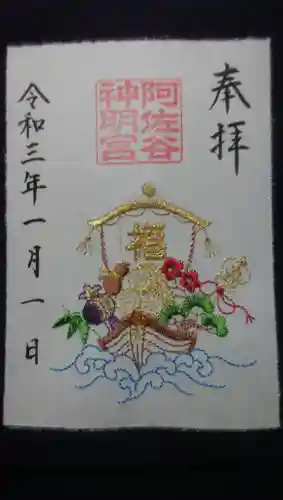 奉拝
阿佐谷
神明宮
令和三年一月一日